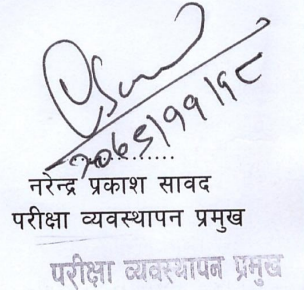 २०७९।११।१८
नरेन्द्र प्रकाश सावद
परीक्षा व्यवस्थापन प्रमुख
परीक्षा व्यवस्थापन प्रमुख